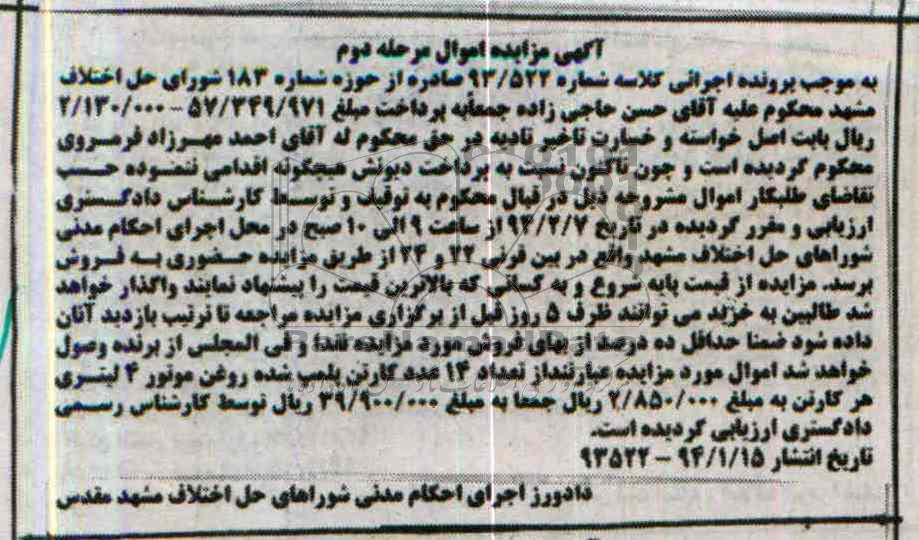 آگهی مزایده اموال مرحله دوم
به موجب پرونده اجرائی کلاسه شماره ۹۳/۵۲۲ صادره از حوزه شماره ۱۸۳ شورای حل اختلاف
مشهد محکوم علیه آقای حسن حاجی زاده جمعاً به پرداخت مبلغ ۵۷/۳۴۹/۹۷۱ – ۲/۱۳۰/۰۰۰
ریال بابت اصل خواسته و خسارت تاخیر تادیه در حق محکوم له آقای احمد مهرزاد فرمروی
محکوم گردیده است و چون تاکنون نسبت به پرداخت دیونش هیچگونه اقدامی ننموده حسب
تقاضای طلبکار اموال مشروحه ذیل در قبال محکوم به توقیف و توسط کارشناس دادگستری
ارزیابی و مقرر گردیده در تاریخ ۹۴/۲/۷ از ساعت ۹ الی ۱۰ صبح در محل اجرای احکام مدنی
شوراهای حل اختلاف مشهد واقع در بین قرنی ۲۲ و ۲۴ از طریق مزایده حضوری به فروش
برسد. مزایده از قیمت پایه شروع و به کسانی که بالاترین قیمت را پیشنهاد نمایند واگذار خواهد
شد طالبین به خرید می توانند ظرف ۵ روز قبل از برگزاری مزایده مراجعه تا ترتیب بازدید آنان
داده شود ضمنا حداقل ده درصد از بهای فروش مورد مزایده نقدا و فی المجلس از برنده وصول
خواهد شد اموال مورد مزایده عبارتنداز تعداد ۱۴ عدد کارتن پلمب شده روغن موتور ۴ لیتری
هر کارتن به مبلغ ۲/۸۵۰/۰۰۰ ریال جمعا به مبلغ ۳۹/۹۰۰/۰۰۰ ریال توسط کارشناس رسمی
دادگستری ارزیابی گردیده است.
تاریخ انتشار ۹۴/۱/۱۵ – ۹۳۵۲۲
دادورز اجرای احکام مدنی شوراهای حل اختلاف مشهد مقدس